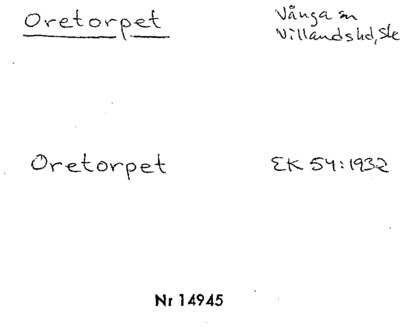 Oretorpet
Vånga sn
Villandshd, Sk
Oretorpet
EK 54:1932
Nr 14945